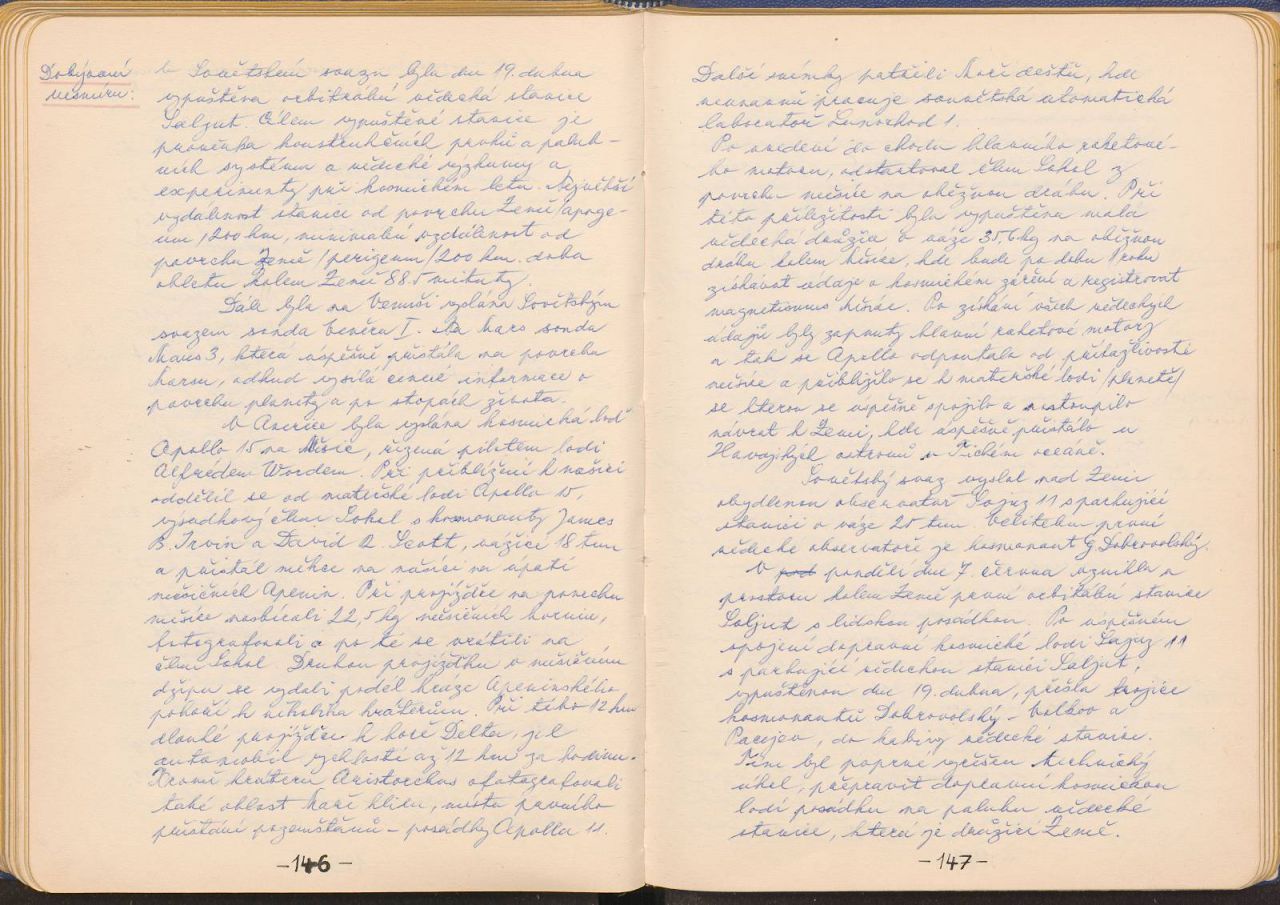 Dobývání
vesmíru:
V Sovětském svazu byla dne 19. dubna
vypuštěna orbitrální vědecká stanice
Saljut. Cílem vypuštěné stanice je
prověrka konstrukčních prvků a palub-
ních systému a vědecké výzkumy a
experimenty při kosmickém letu. Největší
vzdálenost stanice od povrchu Země/apoge-
um/200 km, minimální vzdálenost od
povrchu Země/perigeum/200 km. doba
obletu kolem Země 88.5 minuty.
Dále byla na Venuši vyslána Sovětským
svazem sonda Venera I. Na Mars sonda
Mars 3, která úspěšně přistála na povrchu
Marsu, odkud vysílá cenné informace o
povrchu planety a po stopách života.
V Americe byla vyslána kosmická loď
Apollo 15 na Měsíc, řízená pilotem lodi
Alfrédem Wordem. Při přiblížení k měsíci
oddělil se od mateřské lodi Apollo 15,
výsadkový člun Sokol s kosmonauty James
B. Irvin a David R. Scott, vážící 18 tun
a přistál měkce na měsíci na úpatí
měsíčních Apenin. Při projížďce na povrchu
měsíce nasbírali 22,5 kg měsíčních hornin,
fotografovali a po té se vrátili na
člun Sokol. Druhou projížďku v měsíčním
džípu se vydali podél hráze Apeninského
pohoří k několika kráterům. Při této 12 km
dlouhé projížďce k hoře Delta, jel
automobil rychlostí až 12 km za hodinu.
Kromě krateru Aristorchus ofotografovali
také oblast Moře klidu, místa prvního
přistání pozemšťanů – posádky Apolla 11.
-146-
Další snímky patřili Moři dešťů, kde
neúnavně pracuje sovětská automatická
laboratoř Lunochod 1.
Po uvedení do chodu hlavního raketové-
ho motoru, odstartoval člun Sokol z
povrchu měsíce na oběžnou dráhu. Při
této příležitosti byla vypuštěna malá
vědecká družice o váze 35,6 kg na oběžnou
dráhu kolem Měsíce, kde bude po dobu 1 roku
získávat údaje o kosmickém záření a registrovat
magnetismus Měsíce. Po získání všech vědeckých
údajů byly zapnuty hlavní raketové motory
a tak se Apollo odpoutalo od přitažlivosti
měsíce a přiblížilo se k mateřské lodi /planetě/
se kterou se úspěšně spojilo a nastoupilo
návrat k Zemi, kde úspěšně přistálo u
Havajských ostrovů v Tichém oceáně.
Sovětský svaz vyslal nad Zemi
obydlenou observatoř Sojuz 11 s parkující
stanicí o váze 25 tun. Velitelem první
vědecké observatoře je kosmonaut G. Dobrovolský.
V pod pondělí dne 7. června vznikla v
prostoru kolem Země první orbitální stanice
Saljut s lidskou posádkou. Po úspěšném
spojení dopravní kosmické lodi Sojuz 11
s parkující vědeckou stanicí Saljut,
vypuštěnou dne 19. dubna, přešla trojice
kosmonautů Dobrovolský – Volkov a
Pacajev, do kabiny vědecké stanice.
Tím byl poprvé vyřešen technický
úkol, přepravit dopravní kosmickou
lodí posádku na palubu vědecké
stanice, která je družicí Země.
-147-